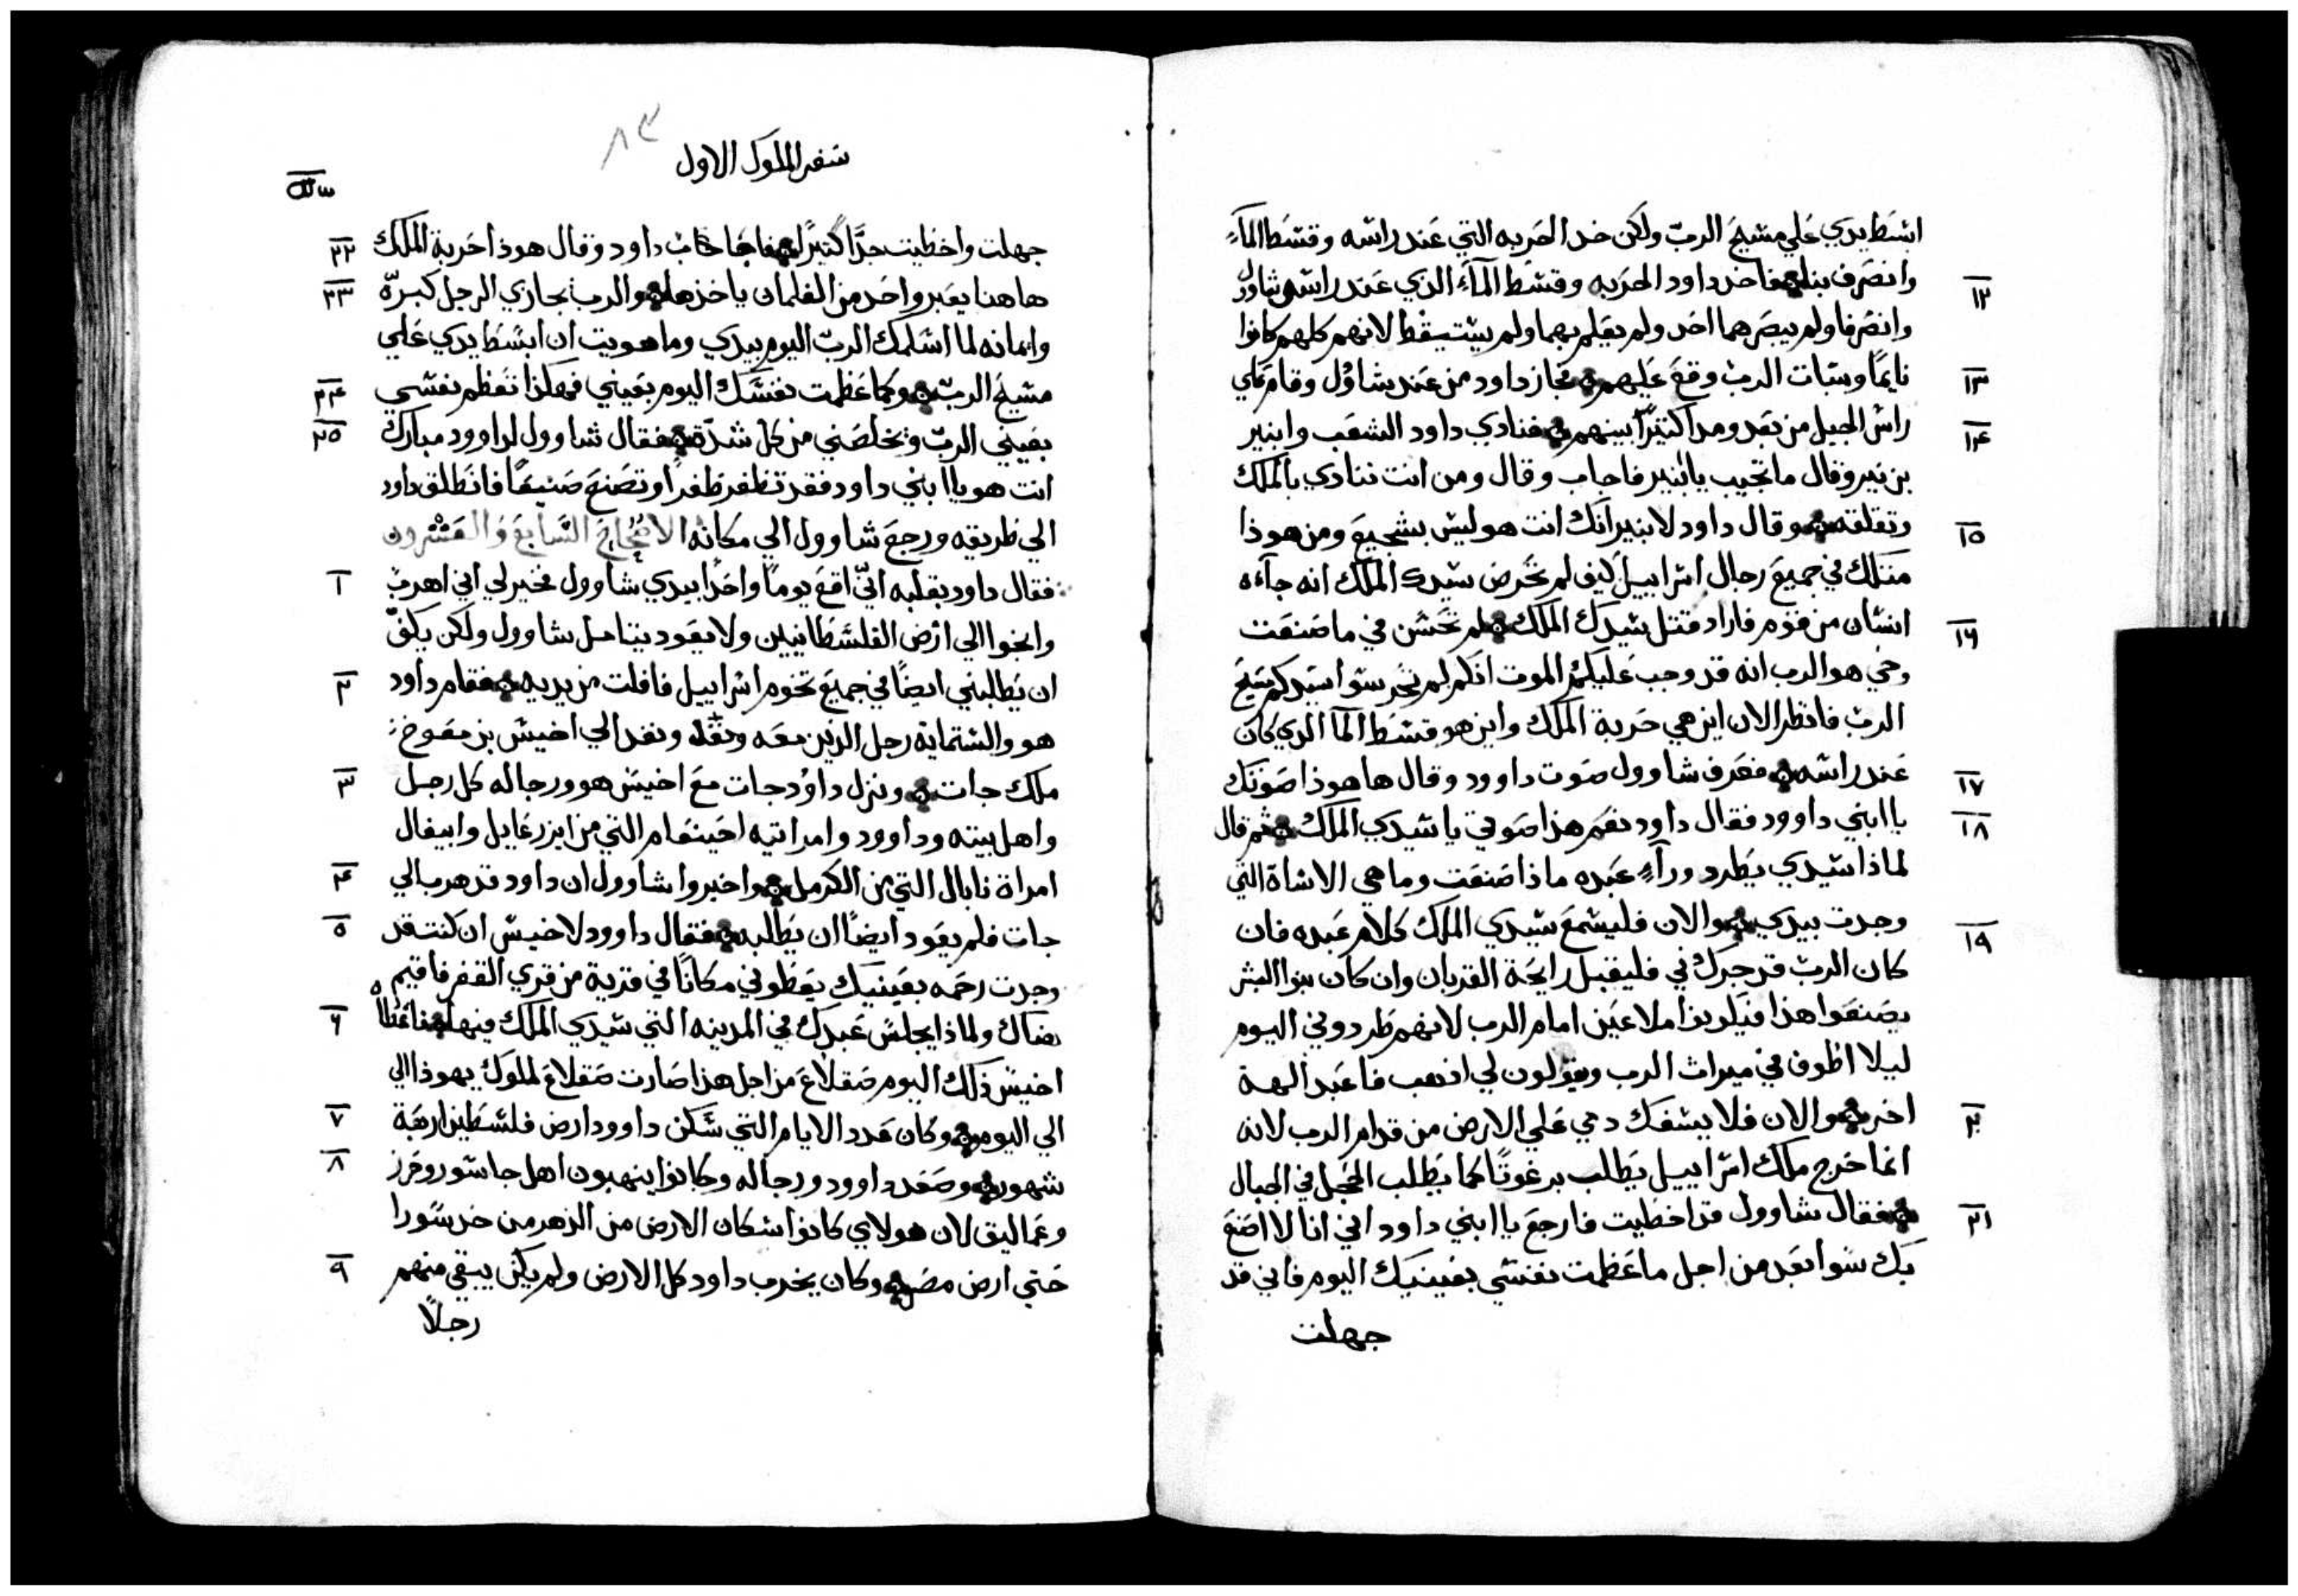 ابسط يدي علي مسيح الرب ولكن خد الحربه التي عند راسه وقسط المآء
وانصرف بنا فاخد داود الحربه وقسط المآء الذي عند راس شاول
١٢
وانصرفا ولم يبصرهما احد ولم يعلم بهما ولم يستيقظ لانهم كلهم كانوا
نايمًا وسبات الرب وقع عليهم فجاز داود من عند شاوُل وقام علي
١٣
راس الجبل من بعد ومدا كثيرًا بينهم فنادي داود الشعب وابنير
١٤
بن نير وقال ما تجيب يا ابنير فاجاب وقال ومن انت تنادي بالملك
وتقلقه وقال داود لابنير انك انت هو ليس بشجيع ومن هو ذا
١٥
متلك في جميع رجال اسراييل كيف لم تحرص سيدك الملك انه جآءه
انسان من قوم فاراد قتل سيدك الملك لم تحسن في ما صنعت
١٦
وحي هو الرب انه قد وجب عليكم الموت انكم لم تحرسوا سيدكم مسيح
الرب فانظر الان اين هي حربة الملك واين هو قسط المآ الدي كان
عند راسه فعرف شاوول صوت داوود وقال ها هوذا صوتك
١٧
يا ابني داوود فقال داود نعم هذا صوتي يا سيدي الملك ثم قال
١٨
لماذا سيدي يطرد ورآء عبده ماذا صنعت وما هي الاساة التي
وجدت بيدي والان فليسمع سيدي الملك كلام عبده فان
١٩
كان الرب قد جرك في فليقبل رايحة القربان وان كان بنوا البشر
يصنعوا هذا فيكونوا ملاعين امام الرب لانهم طردوني اليوم
ليلا اطوف في ميراث الرب ويقولون لي ادهب فاعبد الهة
اخر والان فلا يسفك دمي علي الارض من قدام الرب لانه
٢٠
انما خرج ملك اسراييل يطلب برغوتًا كما يطلب الحجل في الجبال
فقال شاوول قد اخطيت فارجع يا ابني داود اني انا لا اصنع
٢١
بك سوا بعد من اجل ما عظمت نفسي بعينيك اليوم فاني قد
جهلت
٨٣
سفر الملوك الاول
جهلت واخطيت جدًّا كثيرًا فاجاب داود وقال هوذا حربة الملك
٢٢
هاهنا يعبر واحد من الغلمان ياخذها والرب يجازي الرجل كبرّه
٢٣
وايمانه لما اسلمك الرب اليوم بيدي وما هويت ان ابسط يدي علي
مسيح الرب وكما عظمت نفسك اليوم بعيني فهكذا تعظم نفسي
٢٤
بعيني الرب ويخلصني من كل شدّة فقال شاوول لداوود مبارك
٢٥
انت هو يا ابني داود فقد تظفر ظفرًا وتصنع صنيعًا فانطلق داود
الي طريقه ورجع شاوول الي مكانه الاصحاح السابع والعشرون
فقال داود بقلبه انّي اقع يومًا واحدًا بيدي شاوول فخير لي اني اهرب
١
وانجوا الي ارض الفلسطانيين ولا يعود يتامل شاوول ولكن يكفّ
ان يطالبني ايضًا في جميع تخوم اسراييل فافلت من يديه فقام داود
٢
هو والستماية رجل الدين معه ونفد الي اخيش بن معوخ
ملك جات ونزل داوُد جات مع اخيش هو ورجاله كل رجل
٣
واهل بيته وداوود وامراتيه احينعام التي من ايزرعايل وابيغال
امراة نابال التي من الكرمل واخبروا شاوول ان داود قد هرب الي
٤
جات فلم يعود ايضًا ان يطالبه فقال داوود لاخيش ان كنت قد
٥
وجدت رحمه بعينيك يعطوني مكانًا في قرية من قري القفر فاقيم
هناك ولماذا يجلس عبدك في المدينه التي سيدي الملك فيها فاعطاه
٦
اخيش ذلك اليوم صقلاغ من اجل هذا صارت صقلاغ لملوك يهوذا الي
الي اليوم وكان عدد الايام التي سكن داوود ارض فلسطين اربعة
٧
شهور وصعد داوود ورجاله وكانوا ينهبون اهل جاسور وجرز
٨
وعماليق لان هولاي كانوا سكان الارض من الدهر من حد سورا
حتي ارض مصر وكان يخرب داود كل الارض ولم يكن يبقي منهم
٩
رجلاً